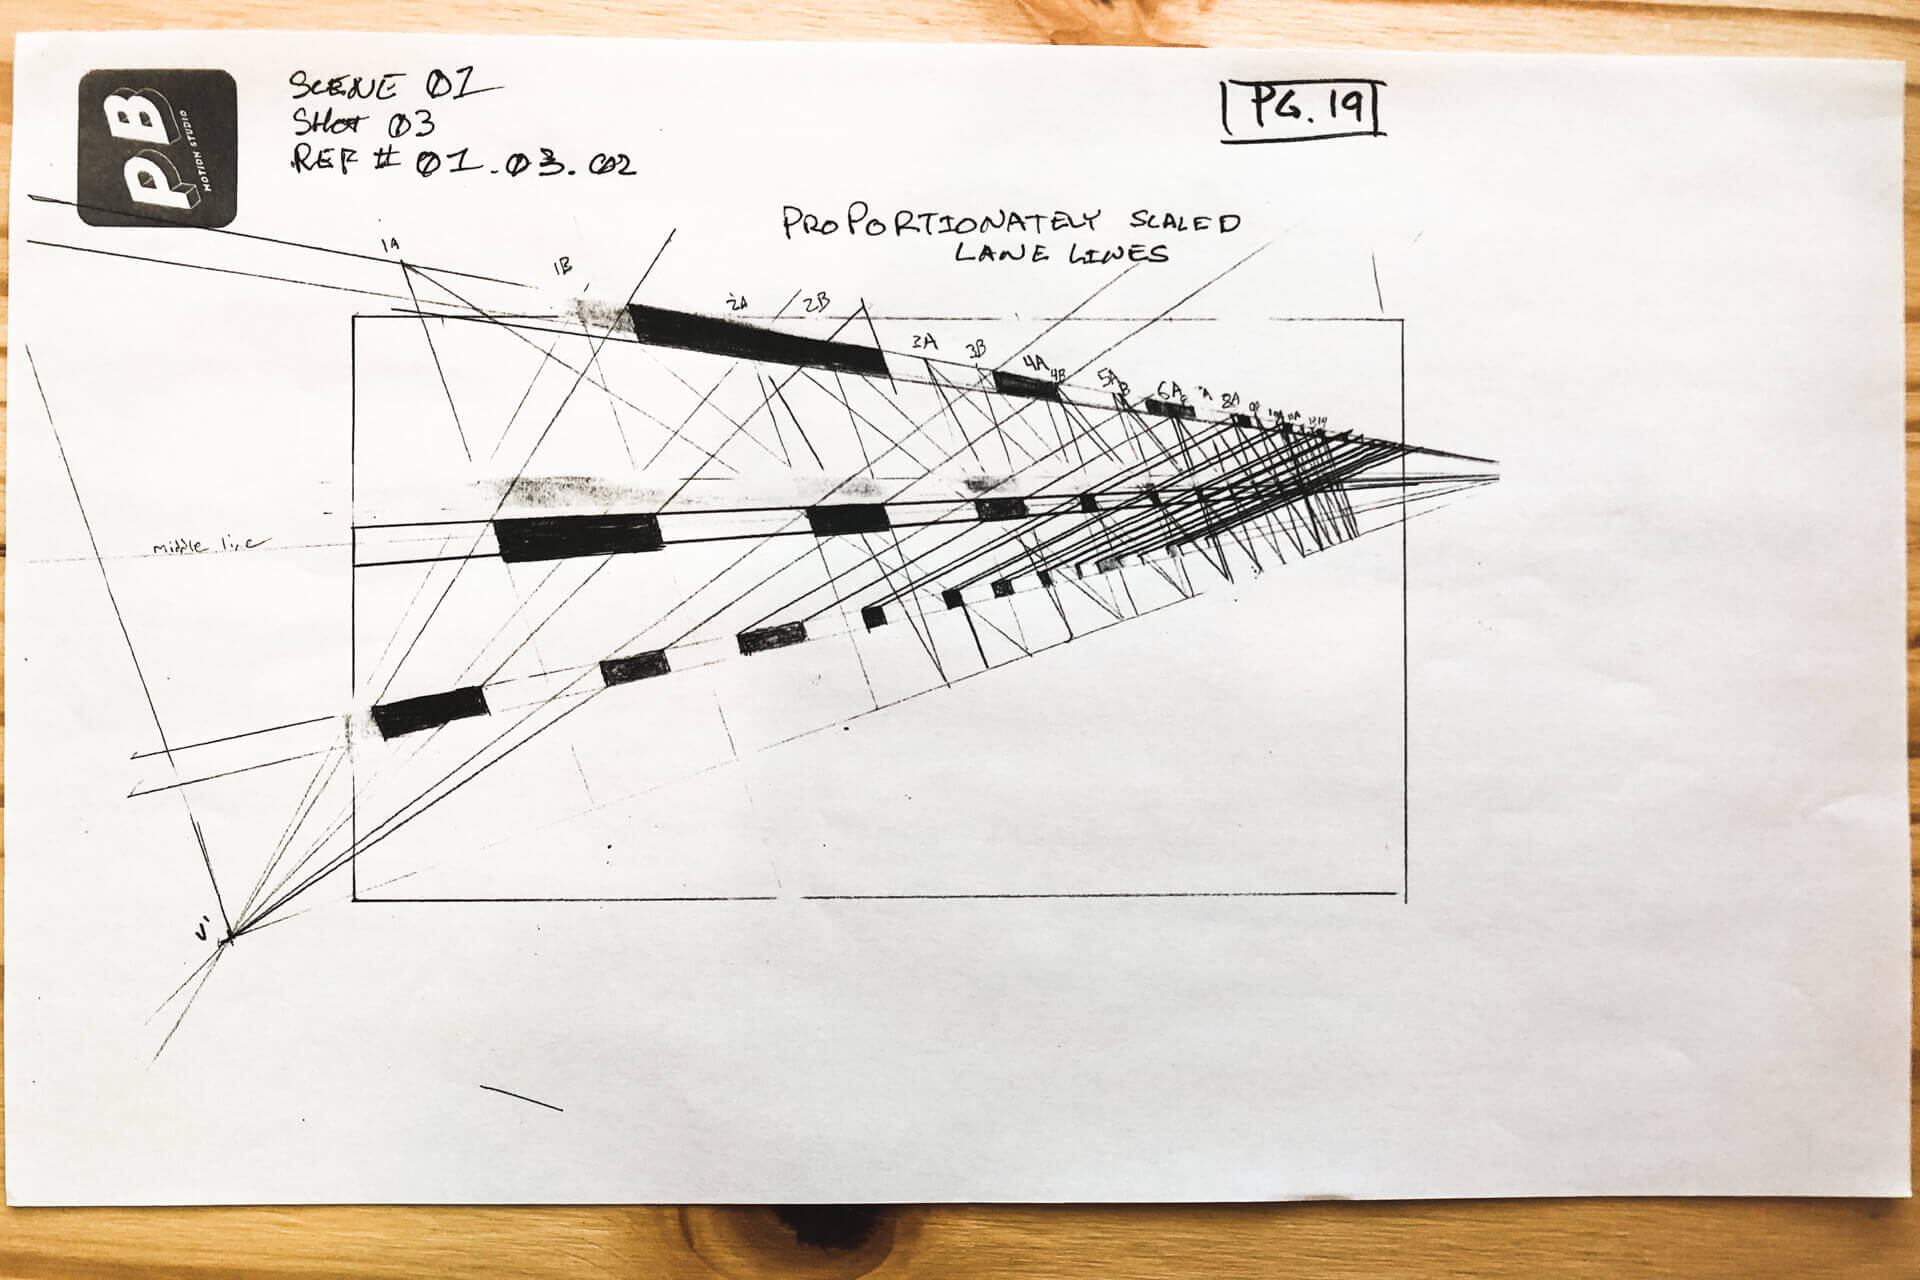 PB
MOTION STUDIO
SCENE 01
SHOT 03
REF # 01.03.02
PG. 19
PROPORTIONATELY SCALED
LANE LINES
1A
1B
2A
2B
3A
3B
4A
4B
5A
B
6A
8A
middle line
V1